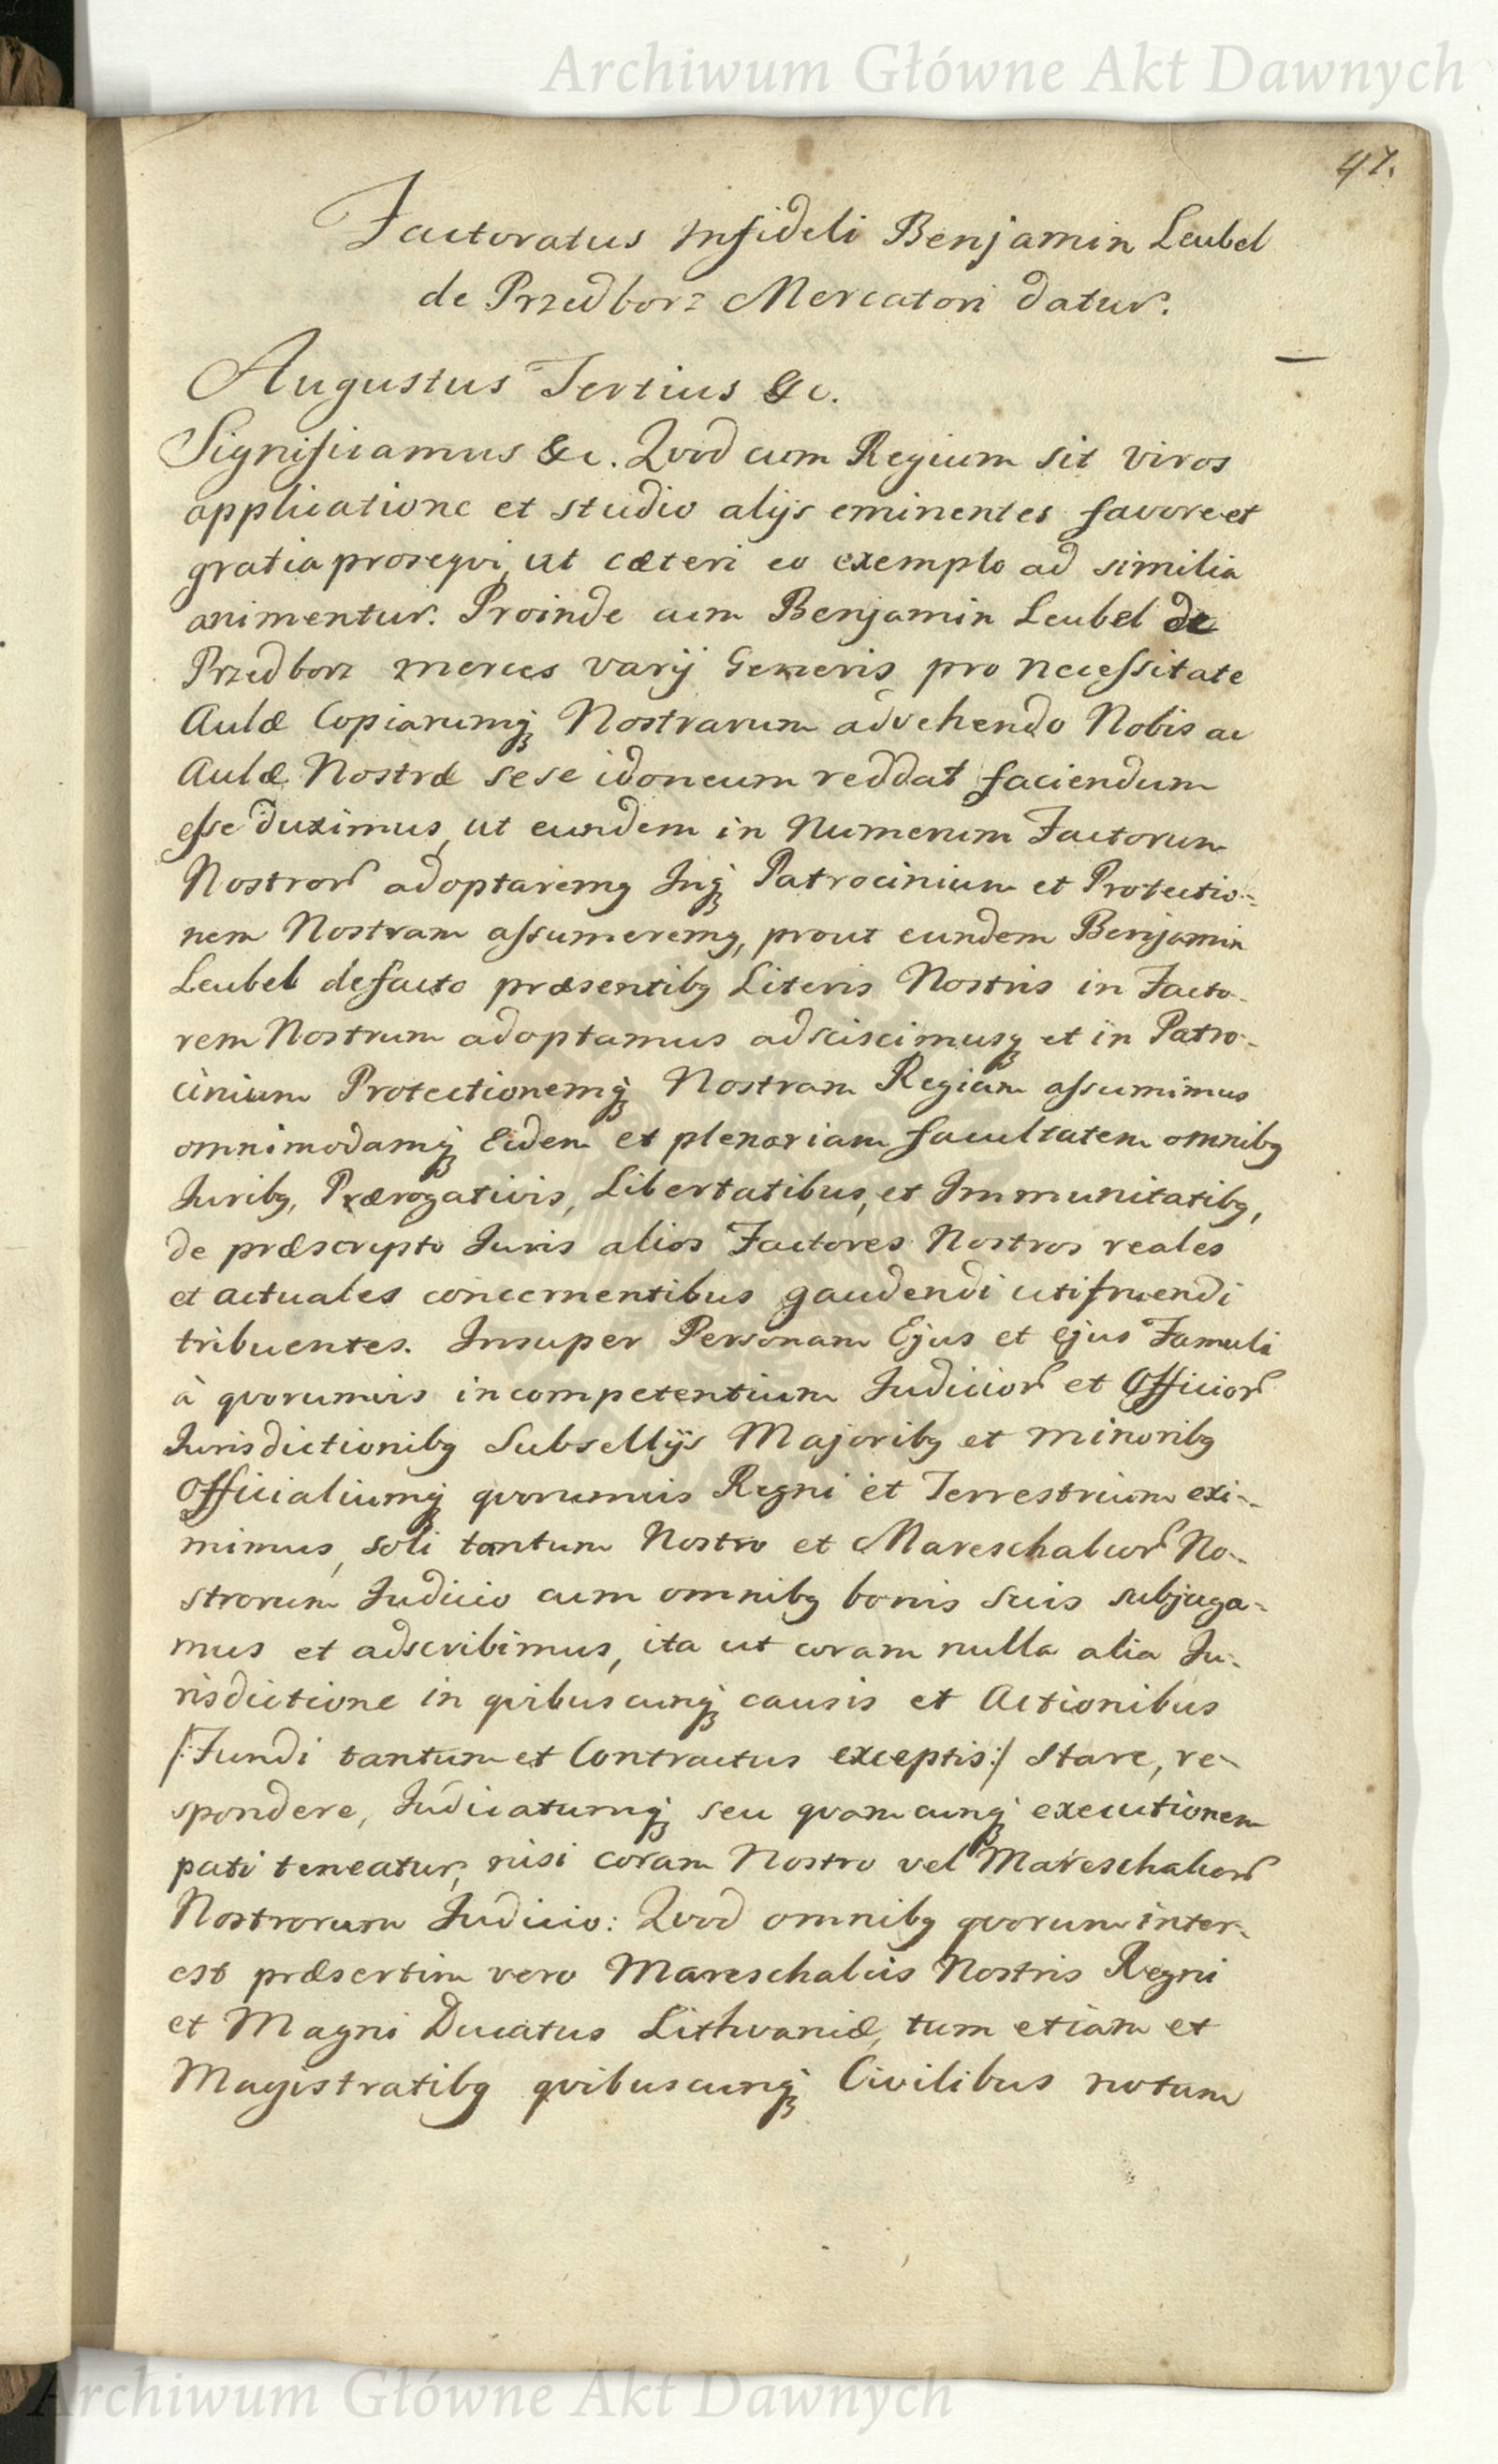 Archiwum Główne Akt Dawnych
47.
Factoratus Infideli Benjamin Leubel
de Przedborz Mercatori datur.
Augustus Tertius &c.
Significamus &c. Qvod cum Regium sit viros
applicatione et studio alijs eminentes favore et
gratia proseqvi, ut cæteri eo exemplo ad similia
animentur. Proinde cum Benjamin Leubel de
Przedborz merces varij Generis pro necessitate
Aulæ Copiarumq; Nostrarum advehendo Nobis ac
Aulæ Nostræ sese idoneum reddat faciendum
esse duximus, ut eundem in Numerum Factorum
Nostror adoptaremg Inq; Patrocinium et Protectio-
nem Nostram assumeremg, prout eundem Benjamin
Leubel defacto præsentibg Literis Nostris in Facto-
rem Nostrum adoptamus adsciscimusq et in Patro-
cinium Protectionemq; Nostram Regiam assumimus
omnimodamq; Eidem et plenariam facultatem omnibg
Juribg, Prærogativis, Libertatibus, et Immunitatibg,
de præscripto Juris alios Factores Nostros reales
et actuales concernentibus gaudendi utifruendi
tribuentes. Insuper Personam Ejus et ejus Famuli
à qvorumvis incompetentium Judicior et Officior
Jurisdictionibg Subsellijs Majoribg et minoribg
Officialiumq; qvorumvis Regni et Terrestrium exi-
mimus, soli tantum Nostro et Mareschalcor No-
strorum Judicio cum omnibg bonis suis subjuga-
mus et adscribimus, ita ut coram nulla alia Ju-
risdictione in qvibuscunq; causis et Actionibus
/:Fundi tantum et Contractus exceptis:/ stare, re-
spondere, Judicatumq; seu qvamcunq; executionem
pati teneatur, nisi coram Nostro vel Mareschalcor
Nostrorum Judicio: Qvod omnibg qvorum inter-
est præsertim vero Mareschalcis Nostris Regni
et Magni Ducatus Lithvaniæ, tum etiam et
Magistratibg qvibuscunq; Civilibus notum
Archiwum Główne Akt Dawnych